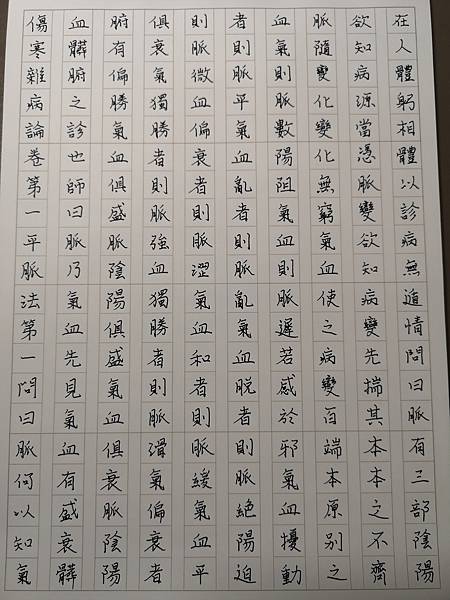 傷寒雜病論卷第一平脈法第一問曰脈何以知氣
血髒腑之診也師曰脈乃氣血先見氣血有盛衰髒
腑有偏勝氣血俱盛脈陰陽俱盛氣血俱衰脈陰陽
俱衰氣獨勝者則脈強血獨勝者則脈滑氣偏衰者
則脈微血偏衰者則脈澀氣血和者則脈緩氣血平
者則脈平氣血亂者則脈亂氣血脫者則脈絕陽迫
血氣則脈數陽阻氣血則脈遲若感於邪氣血擾動
脈隨變化變化無窮氣血使之病變百端本原別之
欲知病源當憑脈變欲知病變先揣其本本之不齊
在人體躬相體以診病無遁情問曰脈有三部陰陽